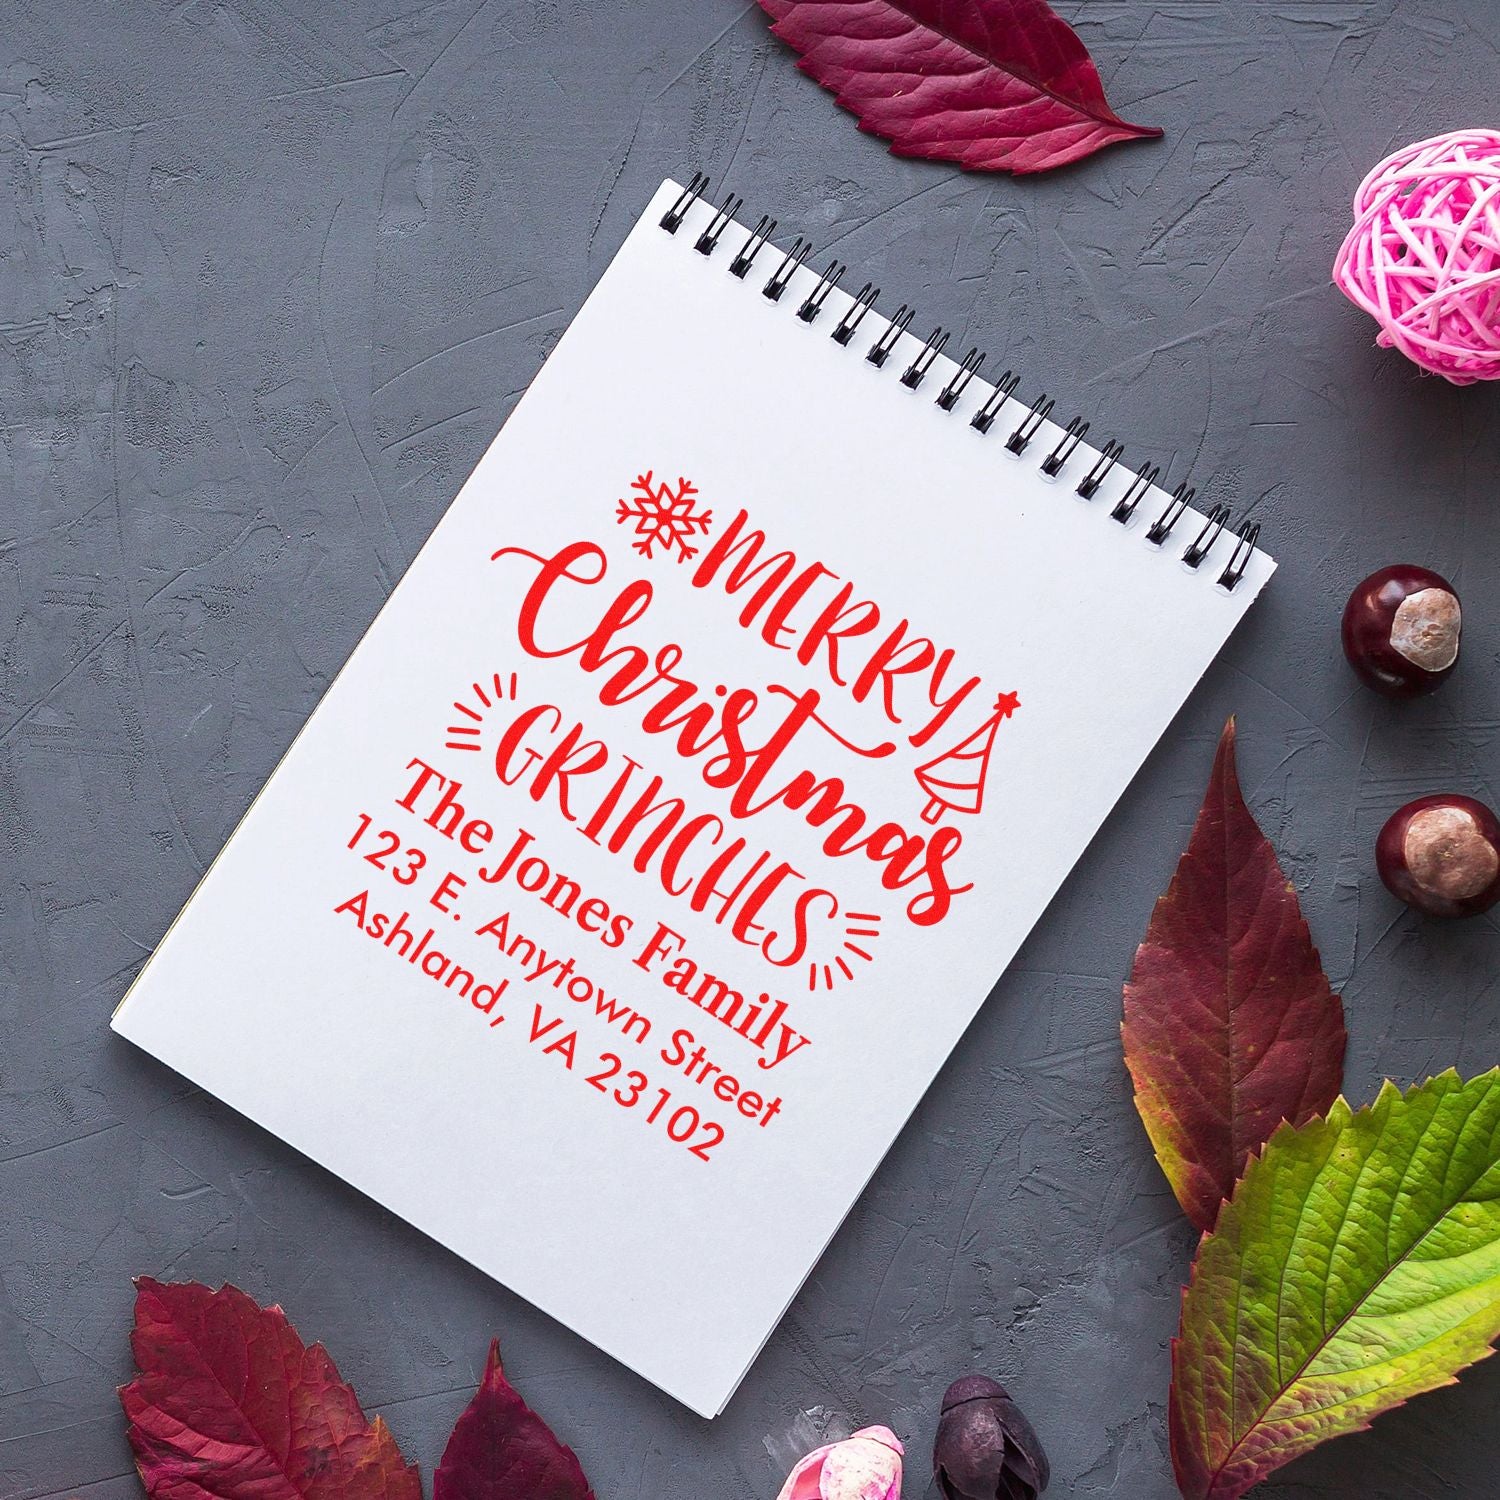 MERRY
Christmas
GRINCHES
The Jones Family
123 E. Anytown Street
Ashland, VA 23102